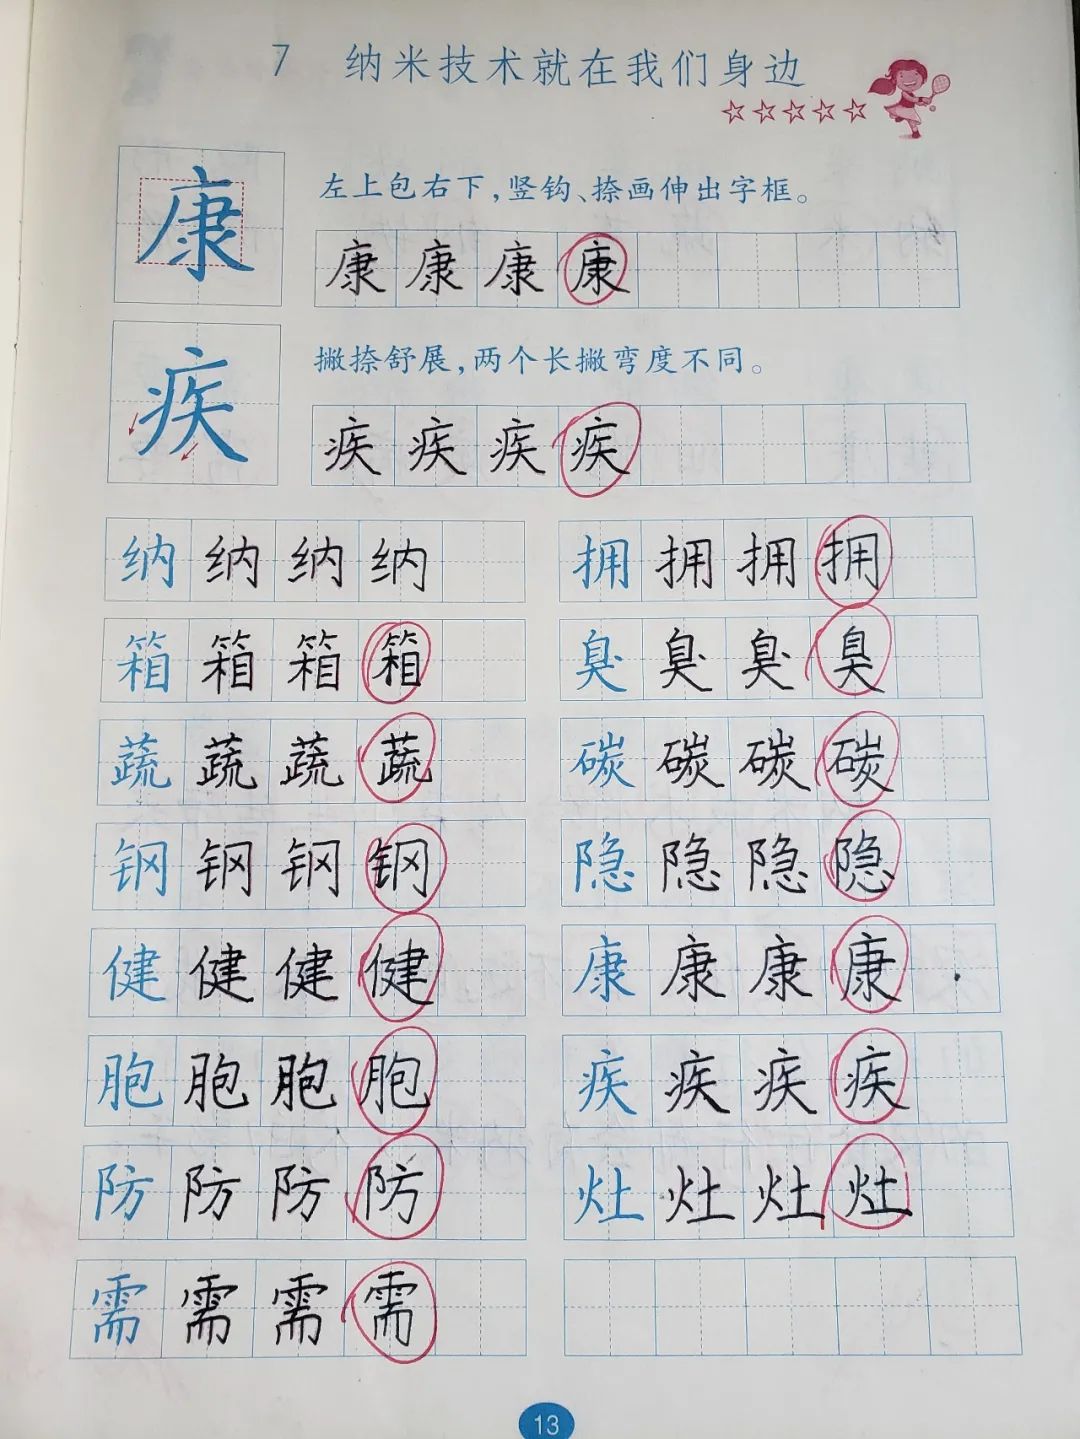 7 纳米技术就在我们身边
康 左上包右下，竖钩、捺画伸出字框。
康 康 康 康
疾 撇捺舒展，两个长撇弯度不同。
疾 疾 疾 疾
纳 纳 纳 纳 拥 拥 拥 拥
箱 箱 箱 箱 臭 臭 臭 臭
蔬 蔬 蔬 蔬 碳 碳 碳 碳
钢 钢 钢 钢 隐 隐 隐 隐
健 健 健 健 康 康 康 康
胞 胞 胞 胞 疾 疾 疾 疾
防 防 防 防 灶 灶 灶 灶
需 需 需 需
13